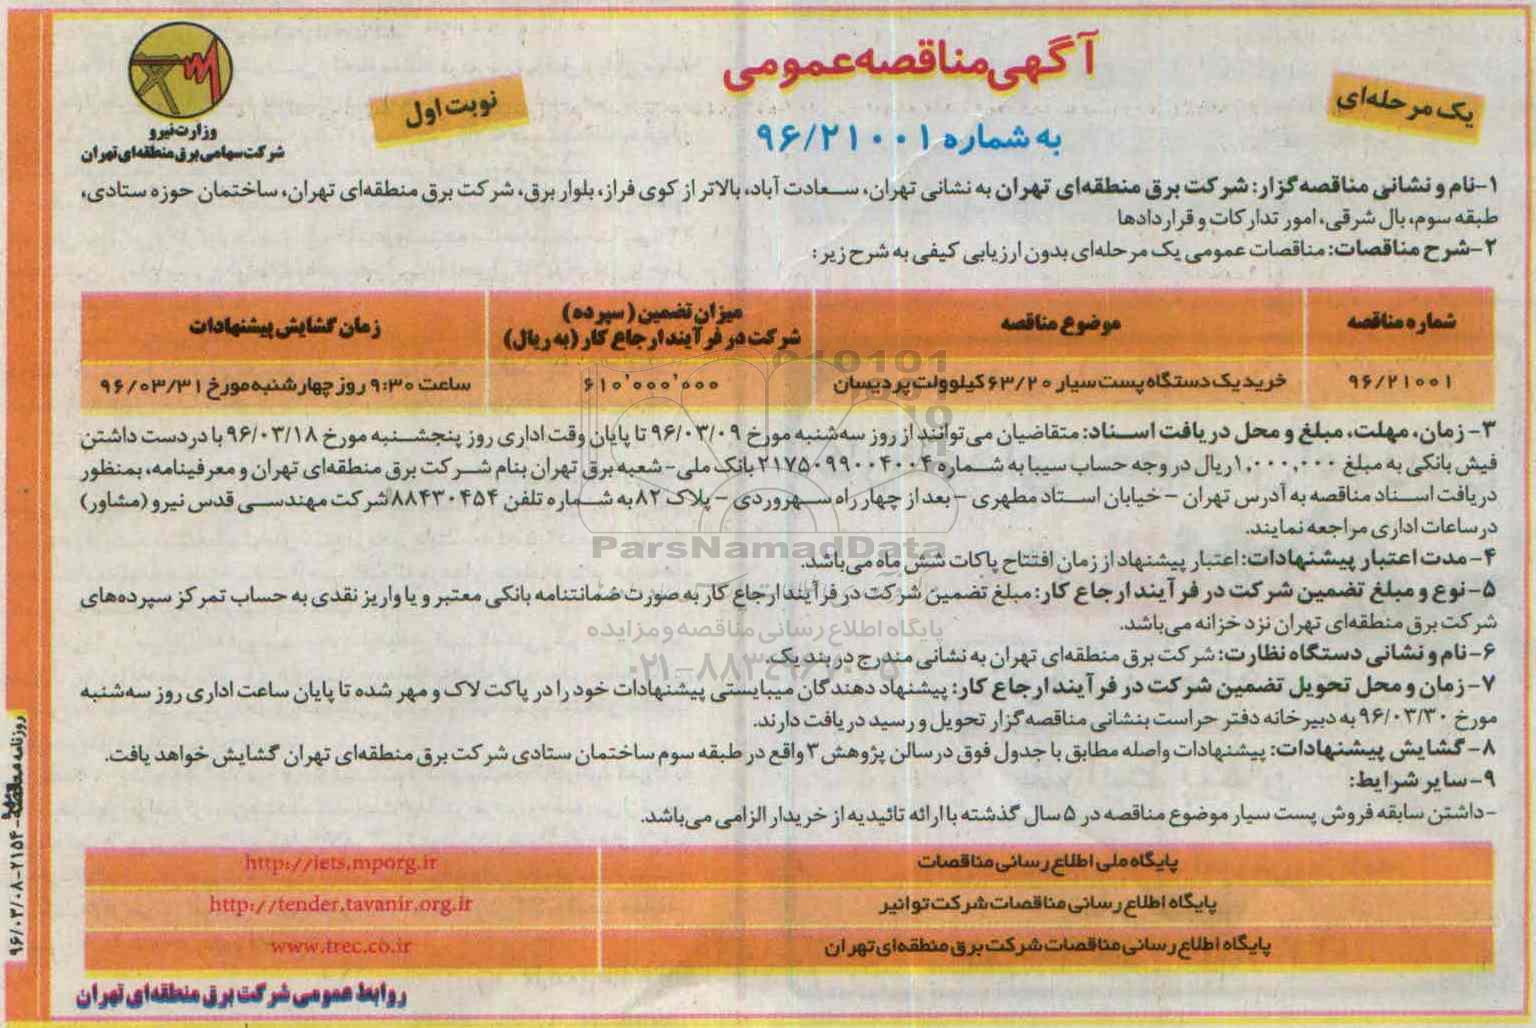 آگهی مناقصه عمومی
یک مرحله‌ای
نوبت اول
به شماره ۹۶/۲۱۰۰۱
وزارت نیرو
شرکت سهامی برق منطقه‌ای تهران
۱-نام و نشانی مناقصه‌گزار: شرکت برق منطقه‌ای تهران به نشانی تهران، سعادت آباد، بالاتر از کوی فراز، بلوار برق، شرکت برق منطقه‌ای تهران، ساختمان حوزه ستادی،
طبقه سوم، بال شرقی، امور تدارکات و قراردادها
۲-شرح مناقصات: مناقصات عمومی یک مرحله‌ای بدون ارزیابی کیفی به شرح زیر:
شماره مناقصه موضوع مناقصه میزان تضمین (سپرده) شرکت در فرآیند ارجاع کار (به ریال) زمان گشایش پیشنهادات
۹۶/۲۱۰۰۱ خرید یک دستگاه پست سیار ۶۳/۲۰ کیلوولت پردیسان ۶۱۰٬۰۰۰٬۰۰۰ ساعت ۹:۳۰ روز چهارشنبه مورخ ۹۶/۰۳/۳۱
۳- زمان، مهلت، مبلغ و محل دریافت اسناد: متقاضیان می‌توانند از روز سه‌شنبه مورخ ۹۶/۰۳/۰۹ تا پایان وقت اداری روز پنجشنبه مورخ ۹۶/۰۳/۱۸ با در دست داشتن
فیش بانکی به مبلغ ۱,۰۰۰,۰۰۰ریال در وجه حساب سیبا به شماره ۲۱۷۵۰۹۹۰۰۴۰۰۴ بانک ملی- شعبه برق تهران بنام شرکت برق منطقه‌ای تهران و معرفینامه، بمنظور
دریافت اسناد مناقصه به آدرس تهران - خیابان استاد مطهری - بعد از چهار راه سهروردی - پلاک ۸۲ به شماره تلفن ۸۸۴۳۰۴۵۴ شرکت مهندسی قدس نیرو (مشاور)
در ساعات اداری مراجعه نمایند.
۴- مدت اعتبار پیشنهادات: اعتبار پیشنهاد از زمان افتتاح پاکات شش ماه می‌باشد.
۵- نوع و مبلغ تضمین شرکت در فرآیند ارجاع کار: مبلغ تضمین شرکت در فرآیند ارجاع کار به صورت ضمانتنامه بانکی معتبر و یا واریز نقدی به حساب تمرکز سپرده‌های
شرکت برق منطقه‌ای تهران نزد خزانه می‌باشد.
۶- نام و نشانی دستگاه نظارت: شرکت برق منطقه‌ای تهران به نشانی مندرج در بند یک.
۷- زمان و محل تحویل تضمین شرکت در فرآیند ارجاع کار: پیشنهاد دهندگان میبایستی پیشنهادات خود را در پاکت لاک و مهر شده تا پایان ساعت اداری روز سه‌شنبه
مورخ ۹۶/۰۳/۳۰ به دبیرخانه دفتر حراست بنشانی مناقصه‌گزار تحویل و رسید دریافت دارند.
۸- گشایش پیشنهادات: پیشنهادات واصله مطابق با جدول فوق در سالن پژوهش ۳ واقع در طبقه سوم ساختمان ستادی شرکت برق منطقه‌ای تهران گشایش خواهد یافت.
۹- سایر شرایط:
-داشتن سابقه فروش پست سیار موضوع مناقصه در ۵ سال گذشته با ارائه تائیدیه از خریدار الزامی می‌باشد.
پایگاه ملی اطلاع رسانی مناقصات http://iets.mporg.ir
پایگاه اطلاع رسانی مناقصات شرکت توانیر http://tender.tavanir.org.ir
پایگاه اطلاع رسانی مناقصات شرکت برق منطقه‌ای تهران www.trec.co.ir
روابط عمومی شرکت برق منطقه‌ای تهران
ParsNamadData
پایگاه اطلاع رسانی مناقصه و مزایده